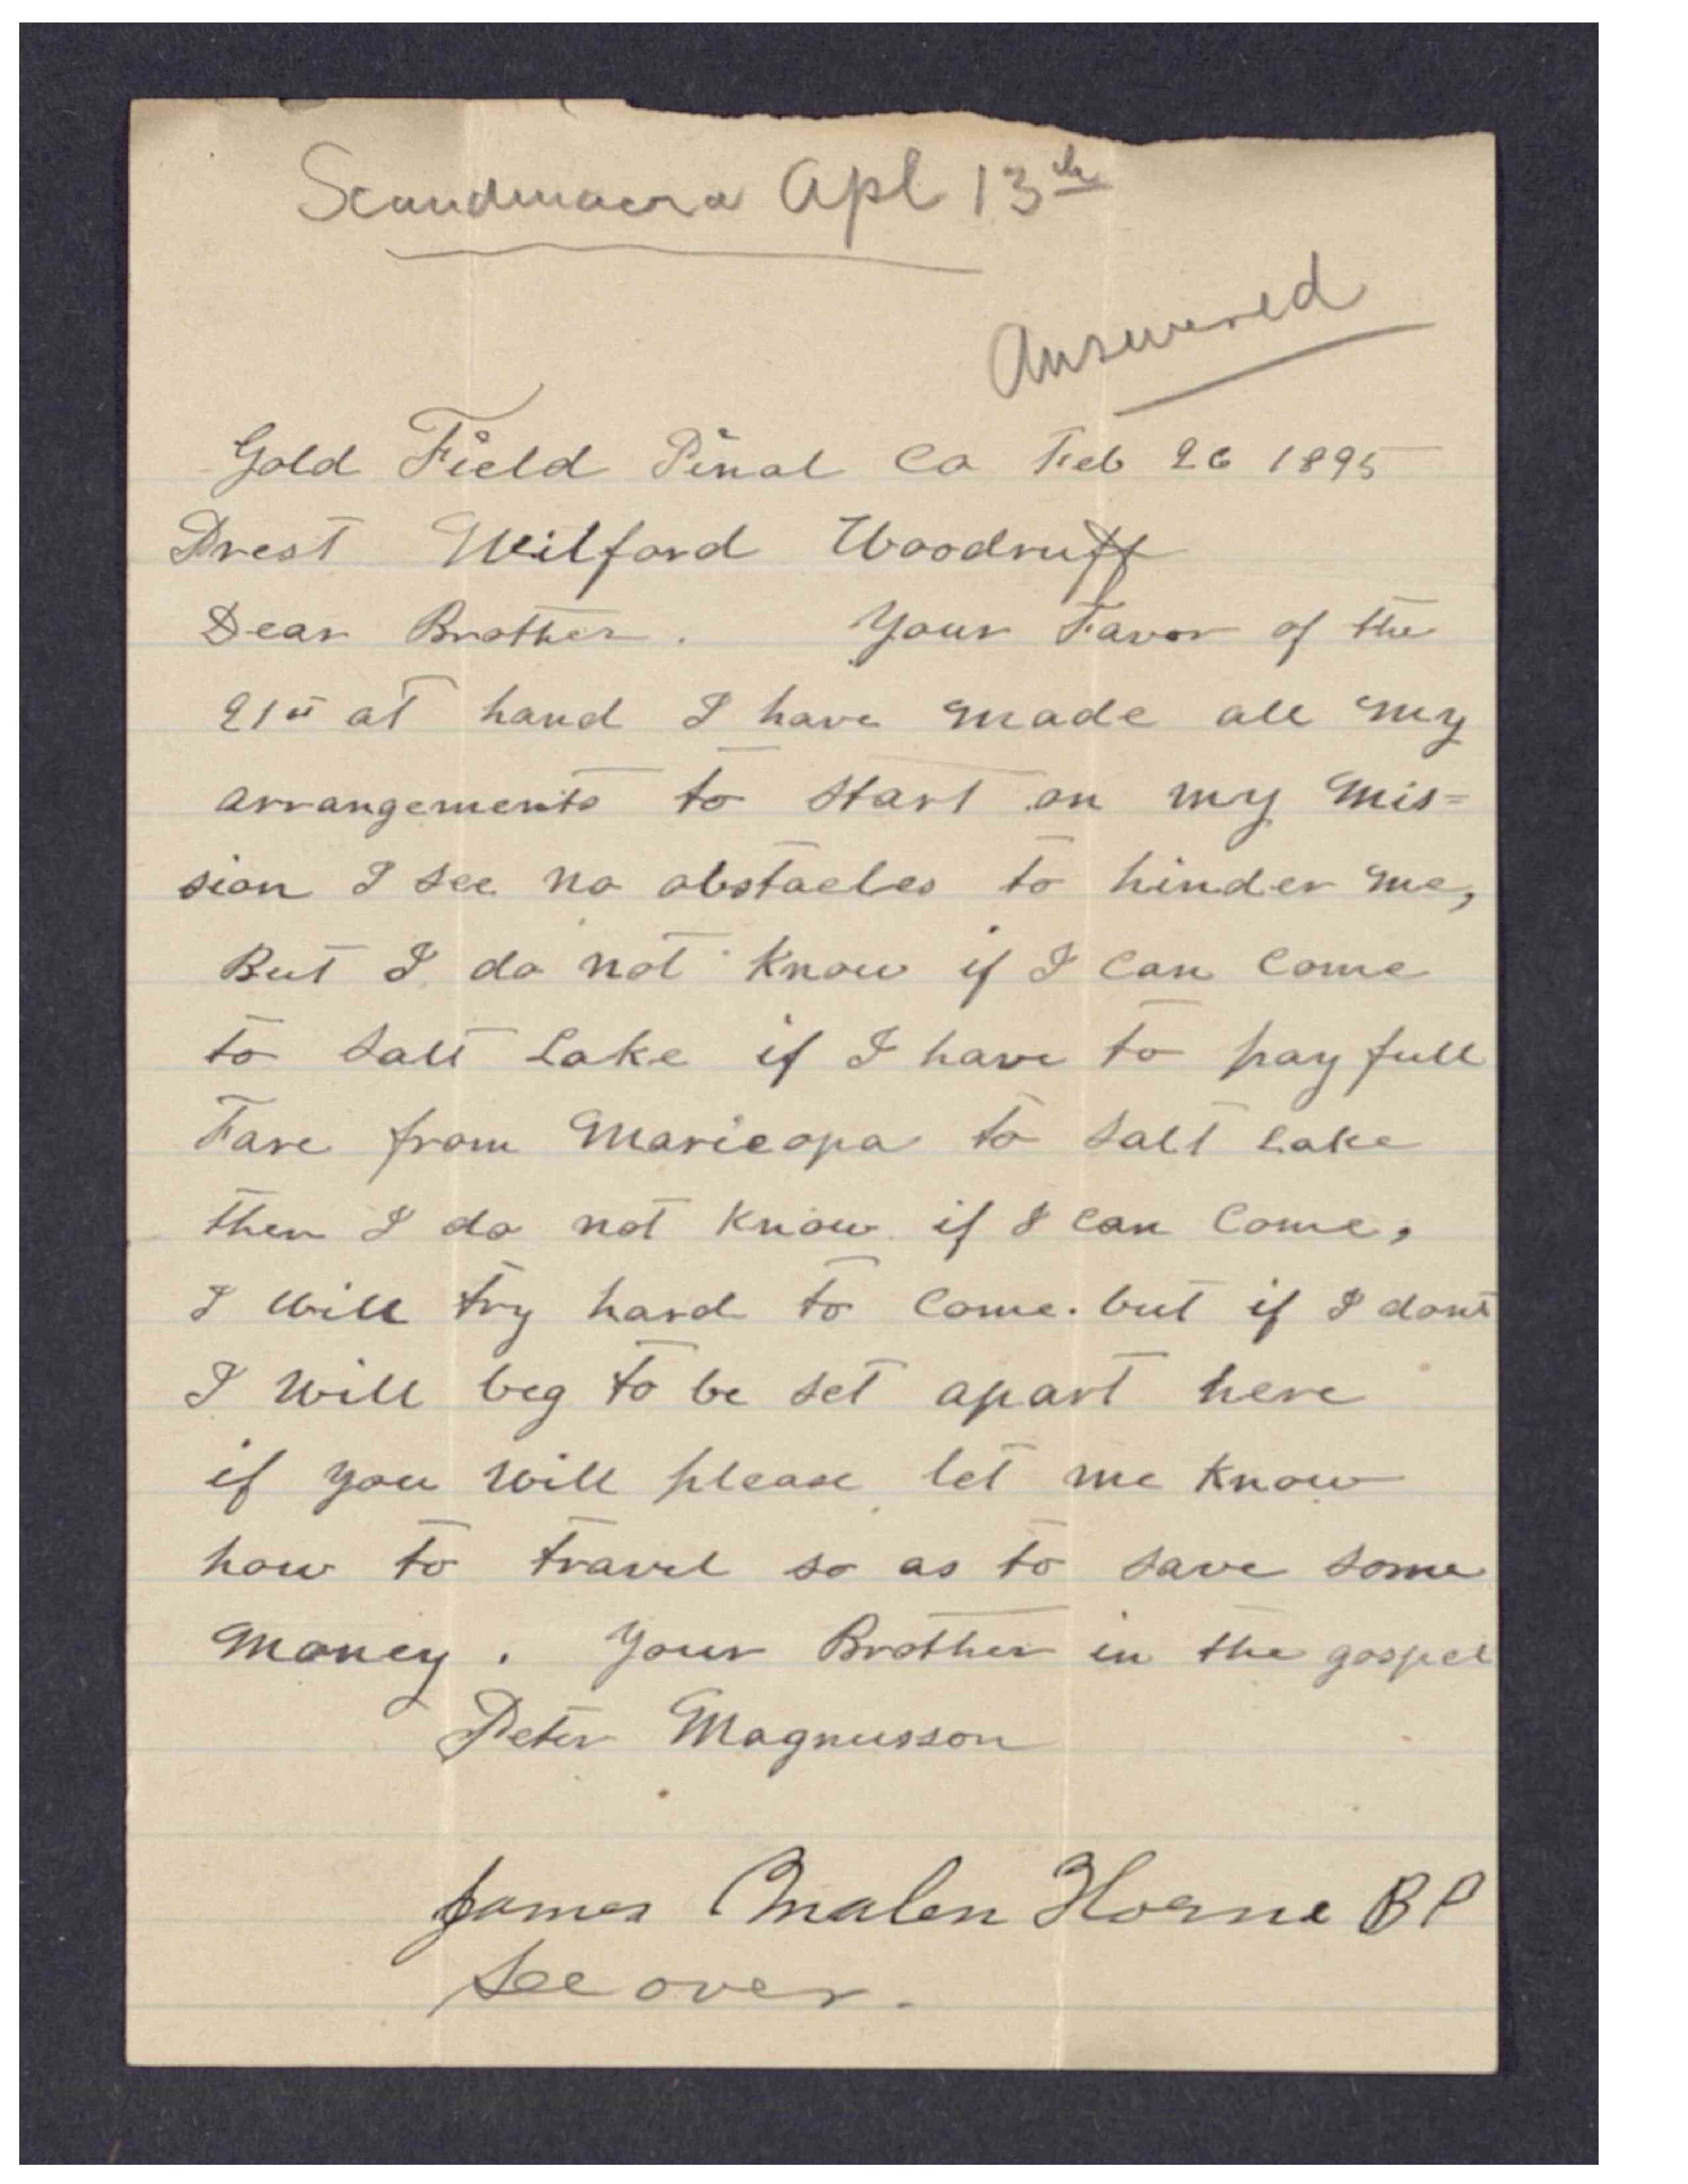 Scandinavia Apl 13th
Answered
Gold Field Pinal Co Feb 26 1895
Prest Wilford Woodruff
Dear Brother. Your Favor of the
21st at hand I have made all my
arrangements to start on my mis=
sion I see no obstacles to hinder me,
But I do not know if I can come
to Salt Lake if I have to pay full
Fare from Maricopa to Salt Lake
then I do not know if I can come,
I will try hard to come. but if I dont
I will beg to be set apart here
if you will please let me know
how to travel so as to save some
money. Your Brother in the gospel
Peter Magnusson
James Malen Horne BP
See over.